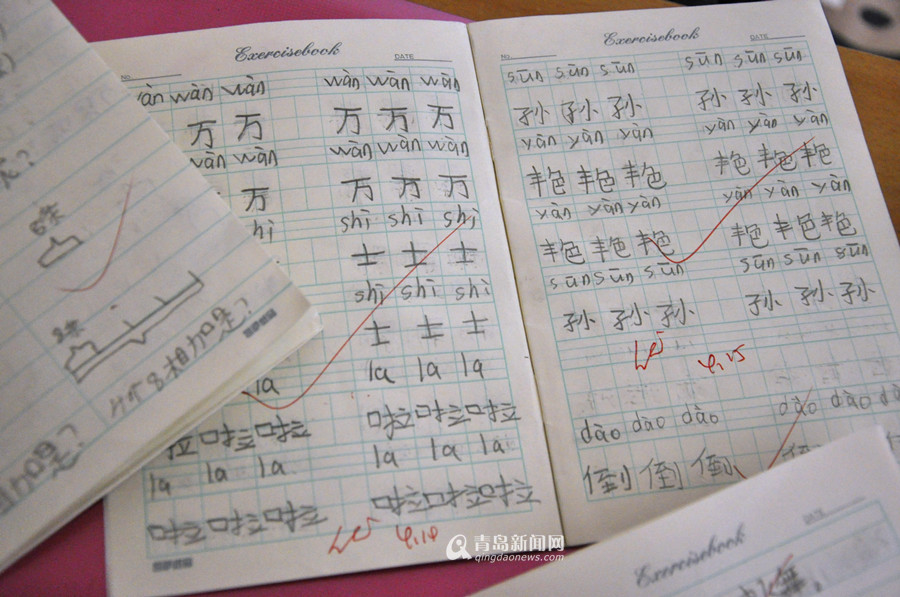 4个8相加是?
Exercisebook
No. DATE
wàn wàn wàn wàn wàn
万 万 万 万 万
wàn wàn wàn wàn wàn
万 万 万 万
shì shì shì
士 士 士
shì shì shì
士 士 士
la la la la
啦 啦 啦 啦 啦
la la la la la la
啦 啦 啦 啦 啦 啦
Exercisebook
No. DATE
sūn sūn sūn sūn sūn sūn
孙 孙 孙 孙 孙 孙
yàn yàn yàn yàn yàn yàn
艳 艳 艳 艳 艳 艳
yàn yàn yàn yàn yàn yàn
艳 艳 艳 艳 艳 艳
sūn sūn sūn sūn sūn sūn
孙 孙 孙 孙 孙 孙
dào dào dào dào dào dào
倒 倒 倒
Exercisebook
DATE
青岛新闻网
qingdaonews.com